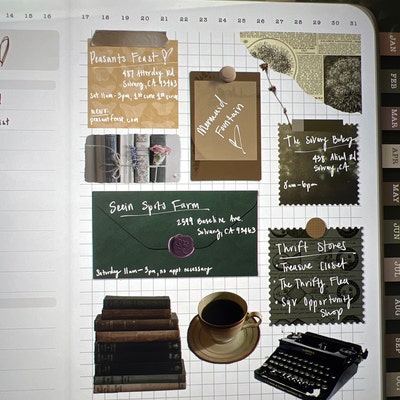 17 18 19 20 21 22 23 24 25 26 27 28 29 30 31
14 15 16
Peasants Feast
487 Atterdag Rd
Solvang, CA 93463
Sat. 11am - 3pm, 1st come 1st serve
MENU:
peasantfeast.com
Mermaid
Fountain
The Solvang Bakery
438 Alisal Rd
Solvang, CA
8am-6pm
Seein Spots Farm
2599 Baseline Ave.
Solvang, CA 93463
Saturday 11am - 3pm, no appt necessary
Thrift Stores
• Treasure Closet
• The Thrifty Flea
• SYV Opportunity
Shop
JAN
FEB
MAR
APR
MAY
JUN
JUL
AUG
SEP
OCT